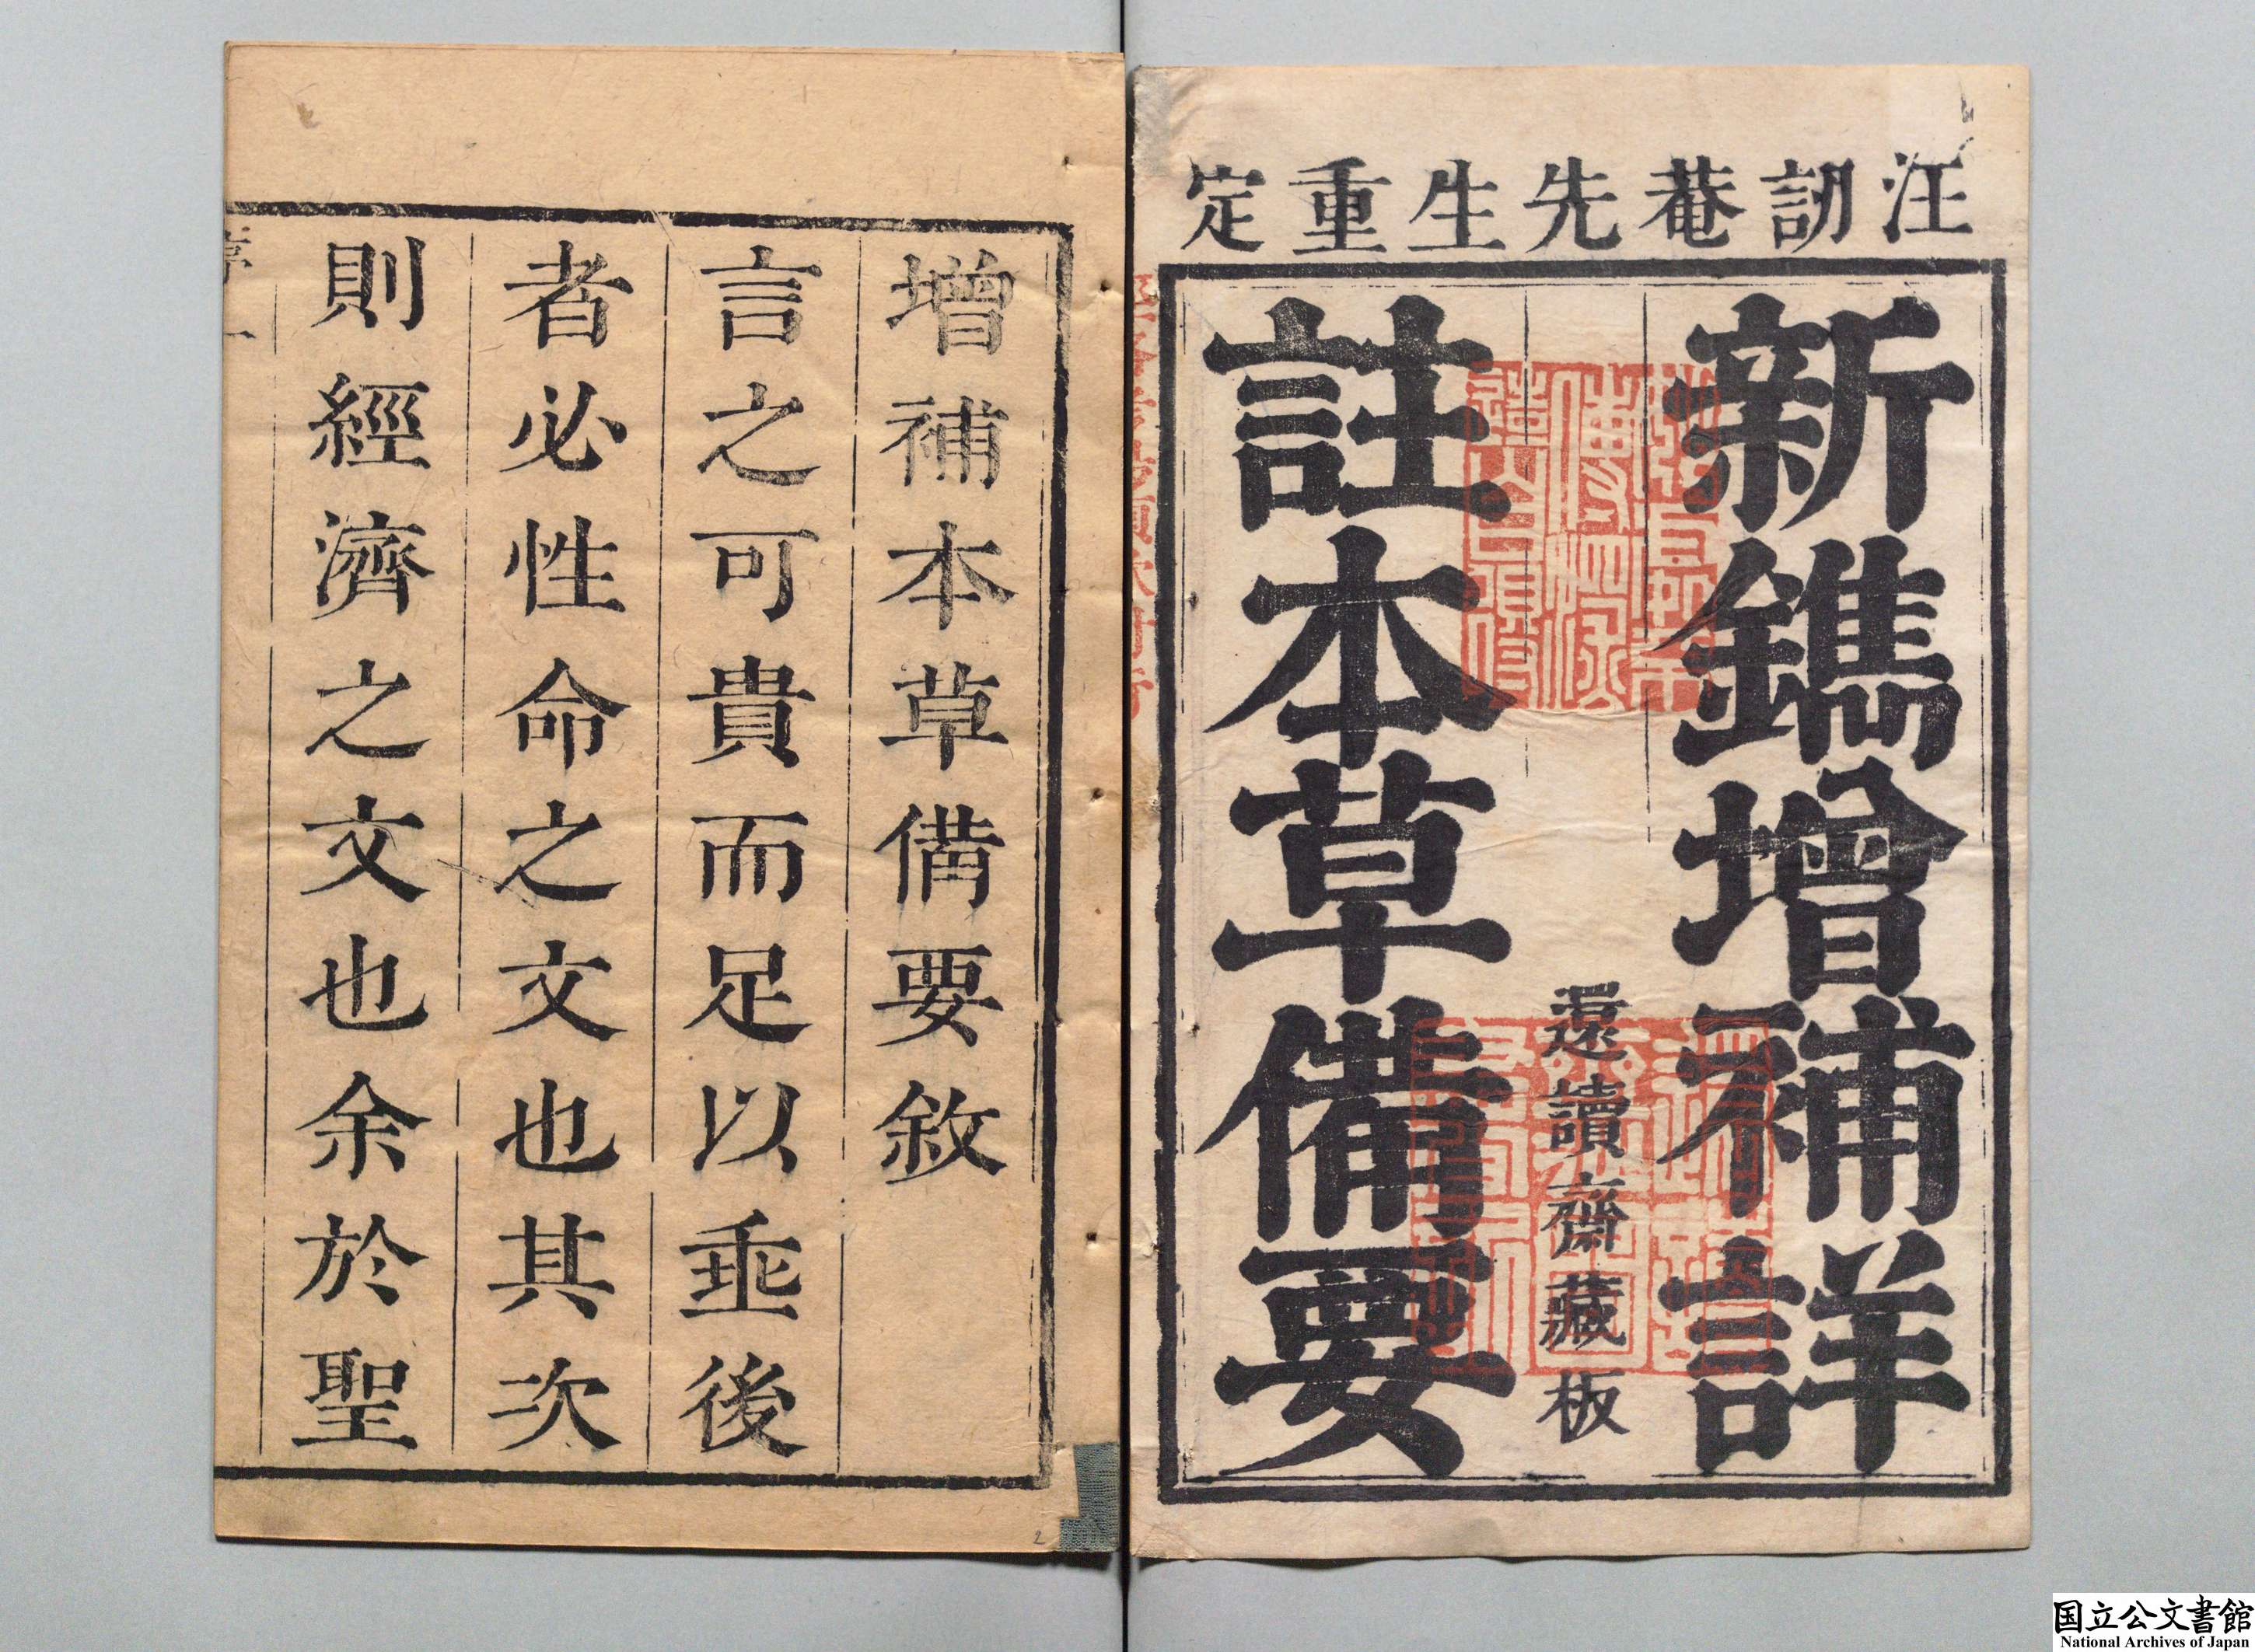 汪訒菴先生重定
新鐫增補詳
註本草備要
還讀齋藏板
增補本草備要敘
言之可貴而足以垂後
者必性命之文也其次
則經濟之文也余於聖
国立公文書館
National Archives of Japan
2